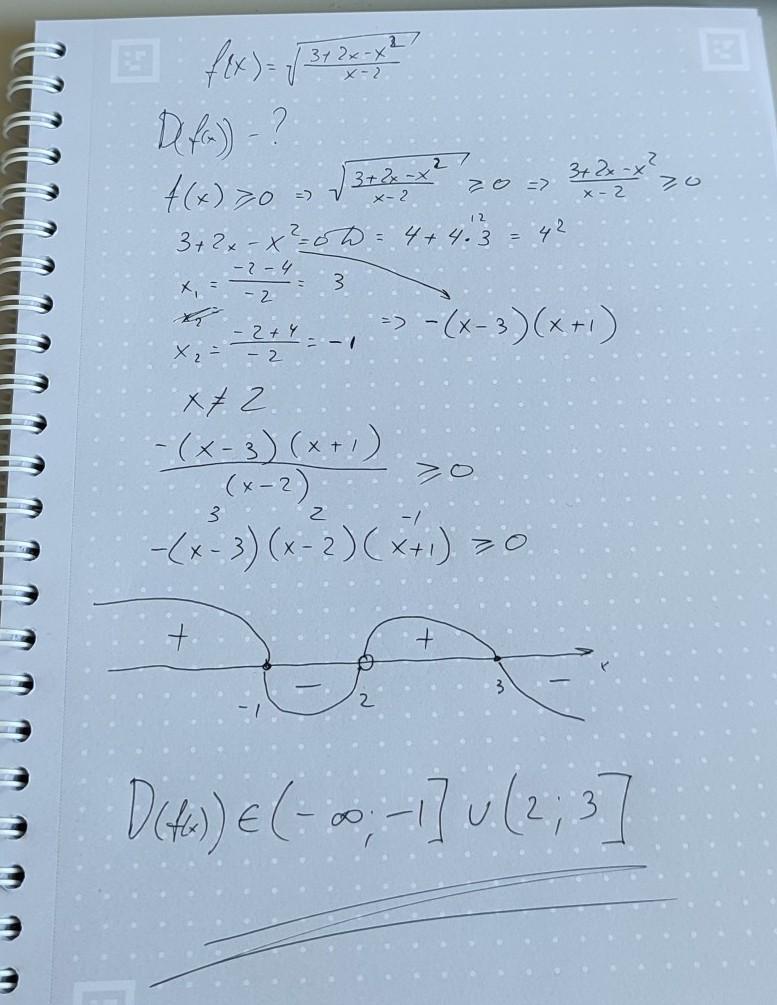 f(x) = √((3+2x-x²)/(x-2))
D(f(x)) - ?
f(x) ⩾ 0 => √((3+2x-x²)/(x-2)) ⩾ 0 => (3+2x-x²)/(x-2) ⩾ 0
3+2x-x²=0 D = 4+4·3 = 4²
12
x₁ = (-2-4)/(-2) = 3
x₂ = (-2+4)/(-2) = -1 => -(x-3)(x+1)
x ≠ 2
(-(x-3)(x+1))/((x-2)) ⩾ 0
3 2 -1
-(x-3)(x-2)(x+1) ⩾ 0
+ - + -
-1 2 3 x
D(f(x)) ∈ (-∞; -1] ∪ (2; 3]